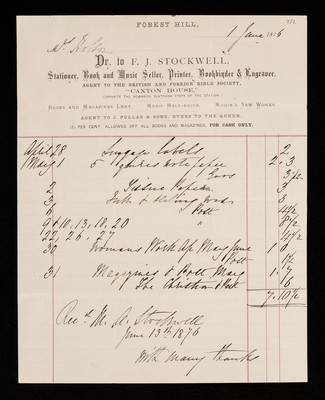 FOREST HILL,
1 June 1876
Dr. to F. J. STOCKWELL,
Stationer, Book and Music Seller, Printer, Bookbinder & Engraver,
AGENT TO THE BRITISH AND FOREIGN BIBLE SOCIETY,
"CAXTON HOUSE,"
(OPPOSITE THE DOWNSIDE PLATFORM STEPS OF THE STATION.)
BOOKS AND MAGAZINES LENT. MUSIC HALF-PRICE. MUDIE'S NEW WORKS.
AGENT TO J. PULLAR & SONS, DYERS TO THE QUEEN.
PER CENT. ALLOWED OFF ALL BOOKS AND MAGAZINES, FOR CASH ONLY.
April 28 Luggage labels 2
May 1 5 quires note paper 2, 3
3½
2 3
3 3
6 Post 4½
9 10, 13, 18, 20 " 8½
22, 26, 27 4½
30 Womans World Up May June 1 6
Post 1½
31 Magazines & Post May 1, 4
The Christian & Post 6
7, 10½
Recd. Stockwell
June 13th 1876
With many thanks